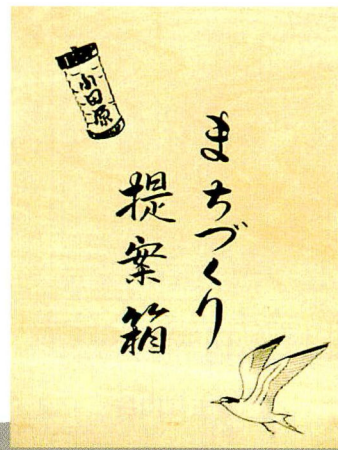 小田原
まちづくり
提案箱